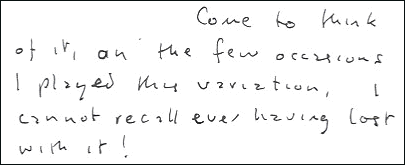 Come to think
of it, on the few occasions
I played this variation, I
cannot recall ever having lost
with it!